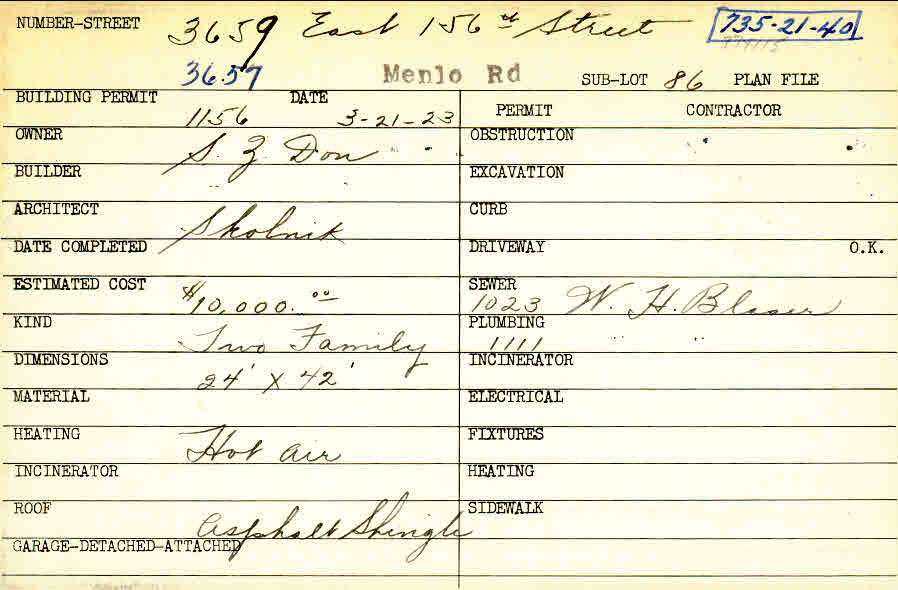 NUMBER-STREET 3659 East 156th Street 735-21-40
3657 Menlo Rd SUB-LOT 86 PLAN FILE
BUILDING PERMIT 1156 DATE 3-21-23 PERMIT CONTRACTOR
OWNER S. Z. Don OBSTRUCTION
BUILDER " " EXCAVATION
ARCHITECT Skolnik CURB
DATE COMPLETED DRIVEWAY O.K.
ESTIMATED COST $10,000.00 SEWER 1023 W. H. Blaser
KIND Two Family PLUMBING 1111
DIMENSIONS 24' X 42' INCINERATOR
MATERIAL ELECTRICAL
HEATING Hot air FIXTURES
INCINERATOR HEATING
ROOF asphalt Shingle SIDEWALK
GARAGE-DETACHED-ATTACHED